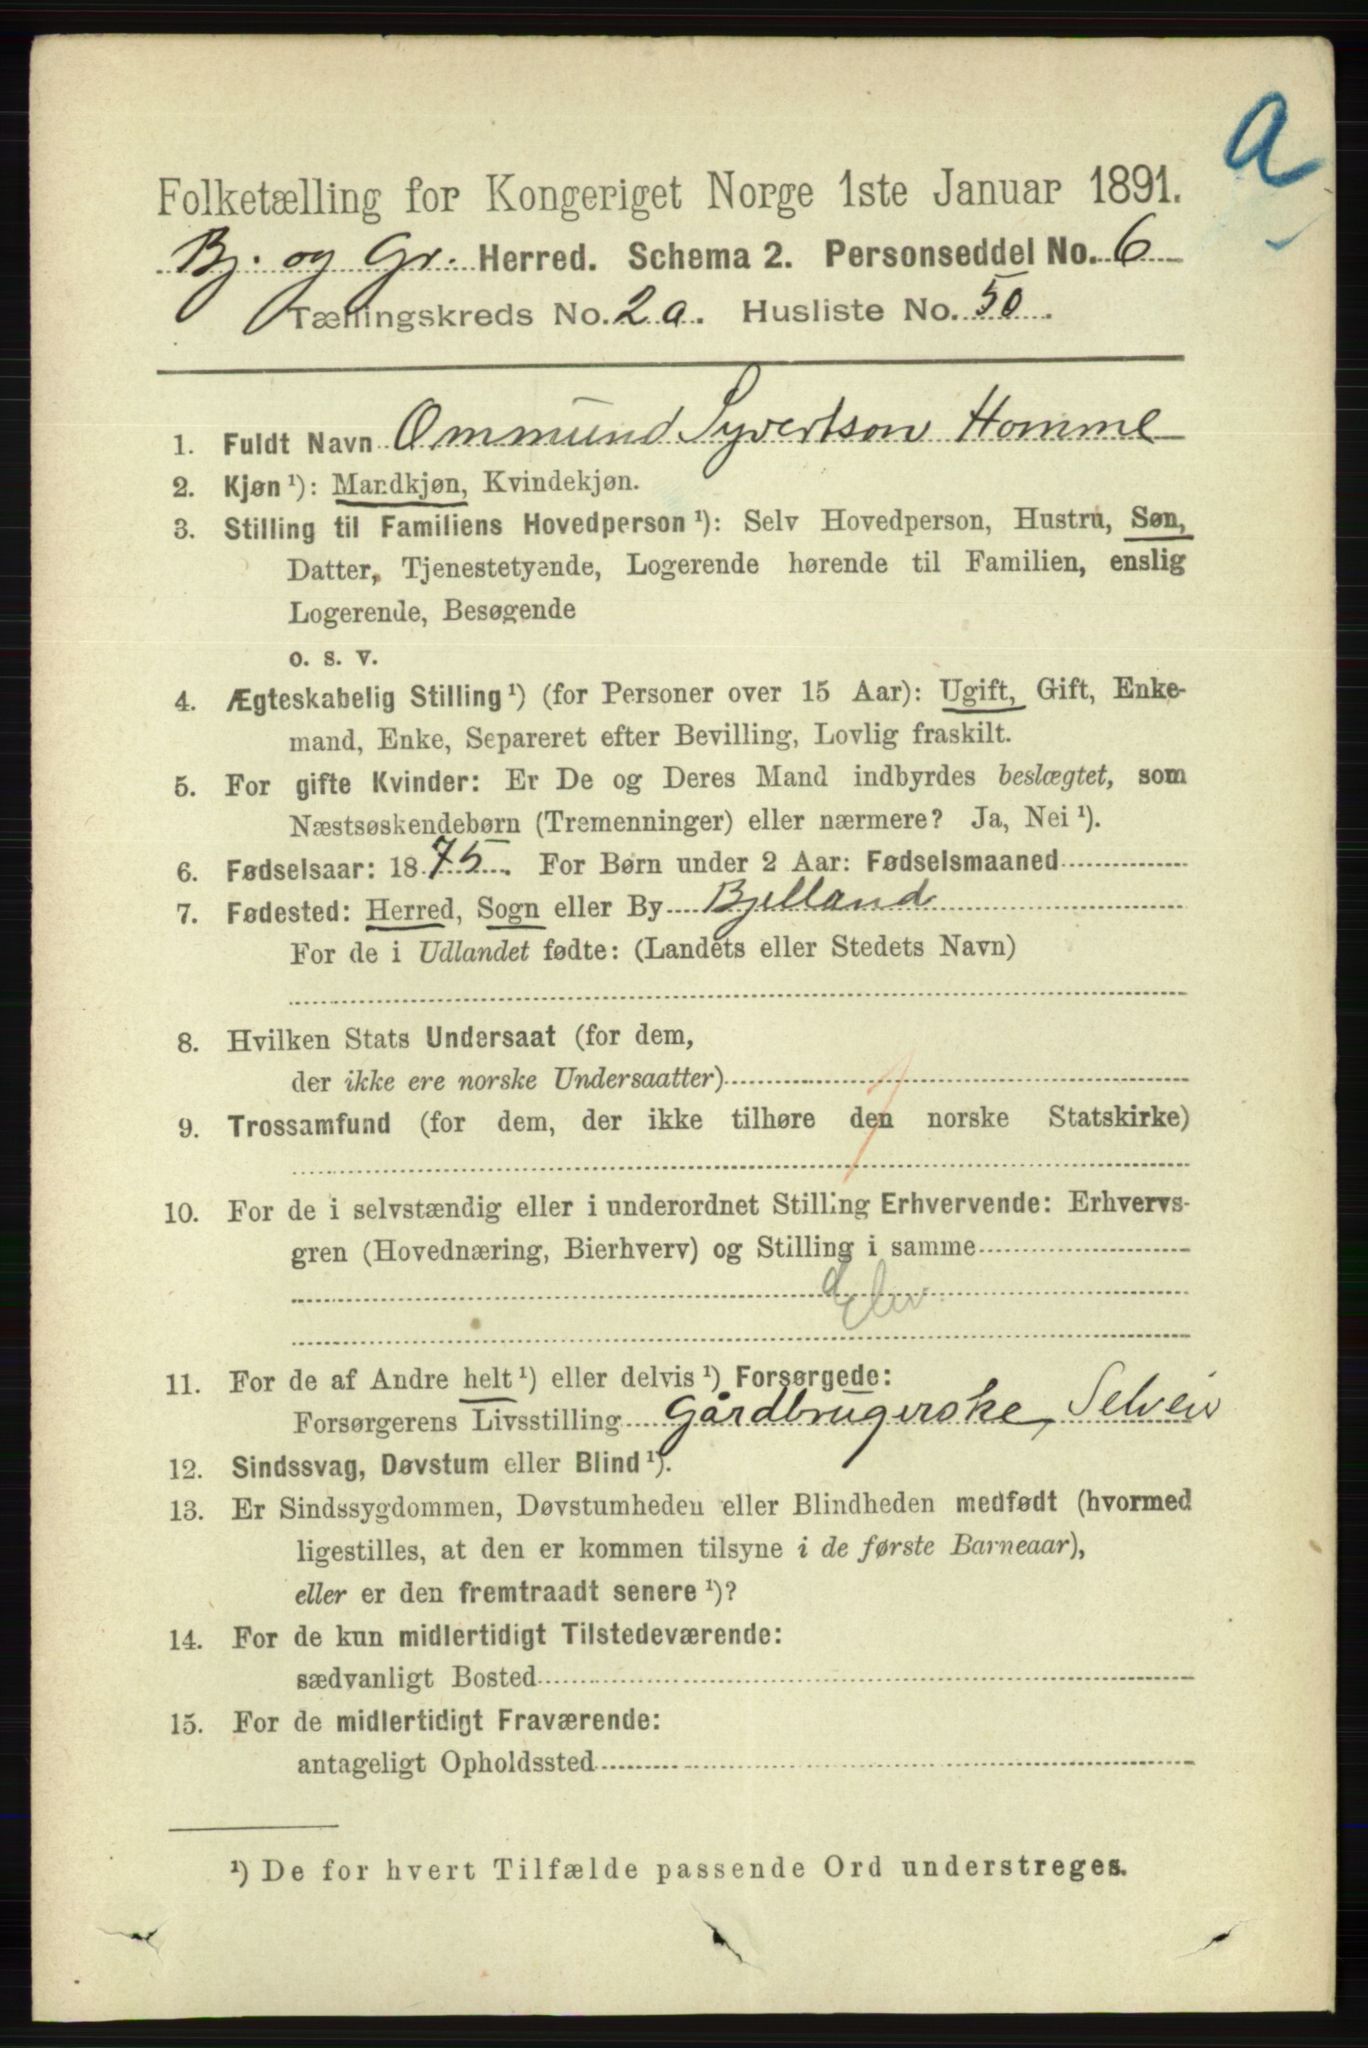 a
Folketælling for Kongeriget Norge 1ste Januar 1891.
Bj. og Gr. Herred. Schema 2. Personseddel No. 6
Tællingskreds No. 2a. Husliste No. 50.
1. Fuldt Navn Ommund Syvertson Homme
2. Kjøn ¹): Mandkjøn, Kvindekjøn.
3. Stilling til Familiens Hovedperson ¹): Selv Hovedperson, Hustru, Søn,
Datter, Tjenestetyende, Logerende hørende til Familien, enslig
Logerende, Besøgende
o. s. v.
4. Ægteskabelig Stilling ¹) (for Personer over 15 Aar): Ugift, Gift, Enke-
mand, Enke, Separeret efter Bevilling, Lovlig fraskilt.
5. For gifte Kvinder: Er De og Deres Mand indbyrdes beslægtet, som
Næstsøskendebørn (Tremenninger) eller nærmere? Ja, Nei ¹).
6. Fødselsaar: 1875. For Børn under 2 Aar: Fødselsmaaned
7. Fødested: Herred, Sogn eller By Bjelland
For de i Udlandet fødte: (Landets eller Stedets Navn)
8. Hvilken Stats Undersaat (for dem,
der ikke ere norske Undersaatter)
9. Trossamfund (for dem, der ikke tilhøre den norske Statskirke)
10. For de i selvstændig eller i underordnet Stilling Erhvervende: Erhvervs-
gren (Hovednæring, Bierhverv) og Stilling i samme
11. For de af Andre helt ¹) eller delvis ¹) Forsørgede:
Forsørgerens Livsstilling Gårdbrugerske, Selveier
12. Sindssvag, Døvstum eller Blind ¹).
13. Er Sindssygdommen, Døvstumheden eller Blindheden medfødt (hvormed
ligestilles, at den er kommen tilsyne i de første Barneaar),
eller er den fremtraadt senere ¹)?
14. For de kun midlertidigt Tilstedeværende:
sædvanligt Bosted
15. For de midlertidigt Fraværende:
antageligt Opholdssted
¹) De for hvert Tilfælde passende Ord understreges.